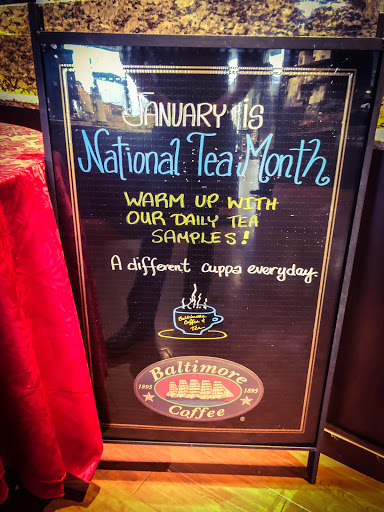 JANUARY IS
National Tea Month
WARM UP WITH
OUR DAILY TEA
SAMPLES!
A different cuppa everyday.
Baltimore
Coffee &
Tea
Baltimore
1895 1895
Coffee
®